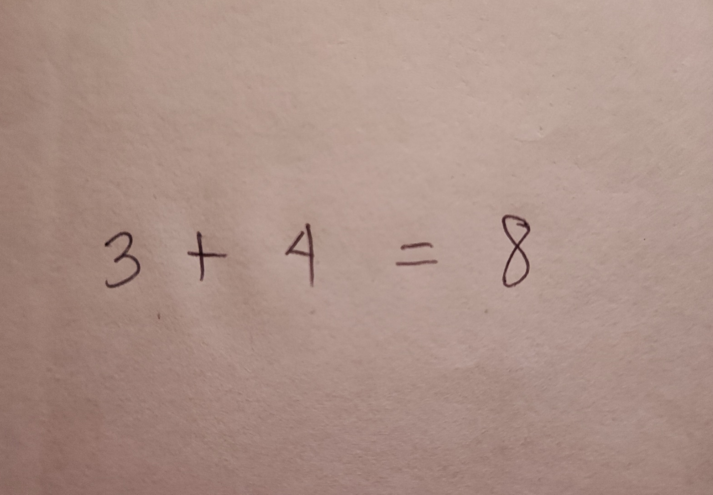 3 + 4 = 8